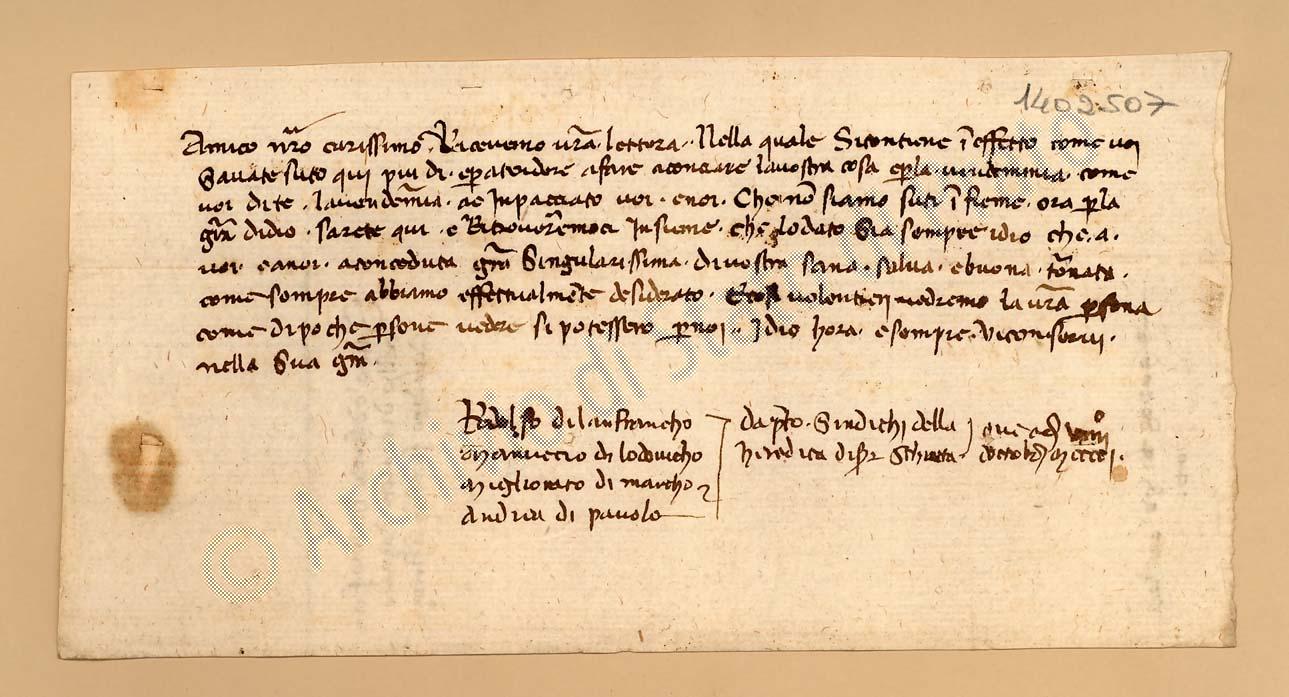 1402507
Amico nr̄o carissimo. Ricevemo vr̄a lettera. Nella quale Sicontiene ī effetto come voi
Savate suto qui piu di. e p atendere afare aconciare lavostra cosa e p la vindemmia. come
voi dite. lavendēmia. ae Inpacciato voi. enoi. Che nō siamo suti ī sieme. ora p la
gr̄a didio. sarete qui. e Ritroverēmoci Insieme. che lodato Sia sempre idio che. a.
voi. eanoi. aconceduta gr̄a Singularissima. divostra sana. salva. ebuona. tornata.
come sempre abbiamo effectualmēte desiderato. volentieri vedremo la vr̄a psona
come dipoche psone vedere si potessero p noi. Idio hora. esempre. viconservi.
nella Sua gr̄a.
Ridolfo di lanfrancho
Manuccio di lodovicho
Miglionato di marcho
Andrea di pavolo
da p̄to. Sindichi della
hiredita di Schiatta.
adi viiii°
d'ottobre Mcccci.
© Archivio di Stato di Prato